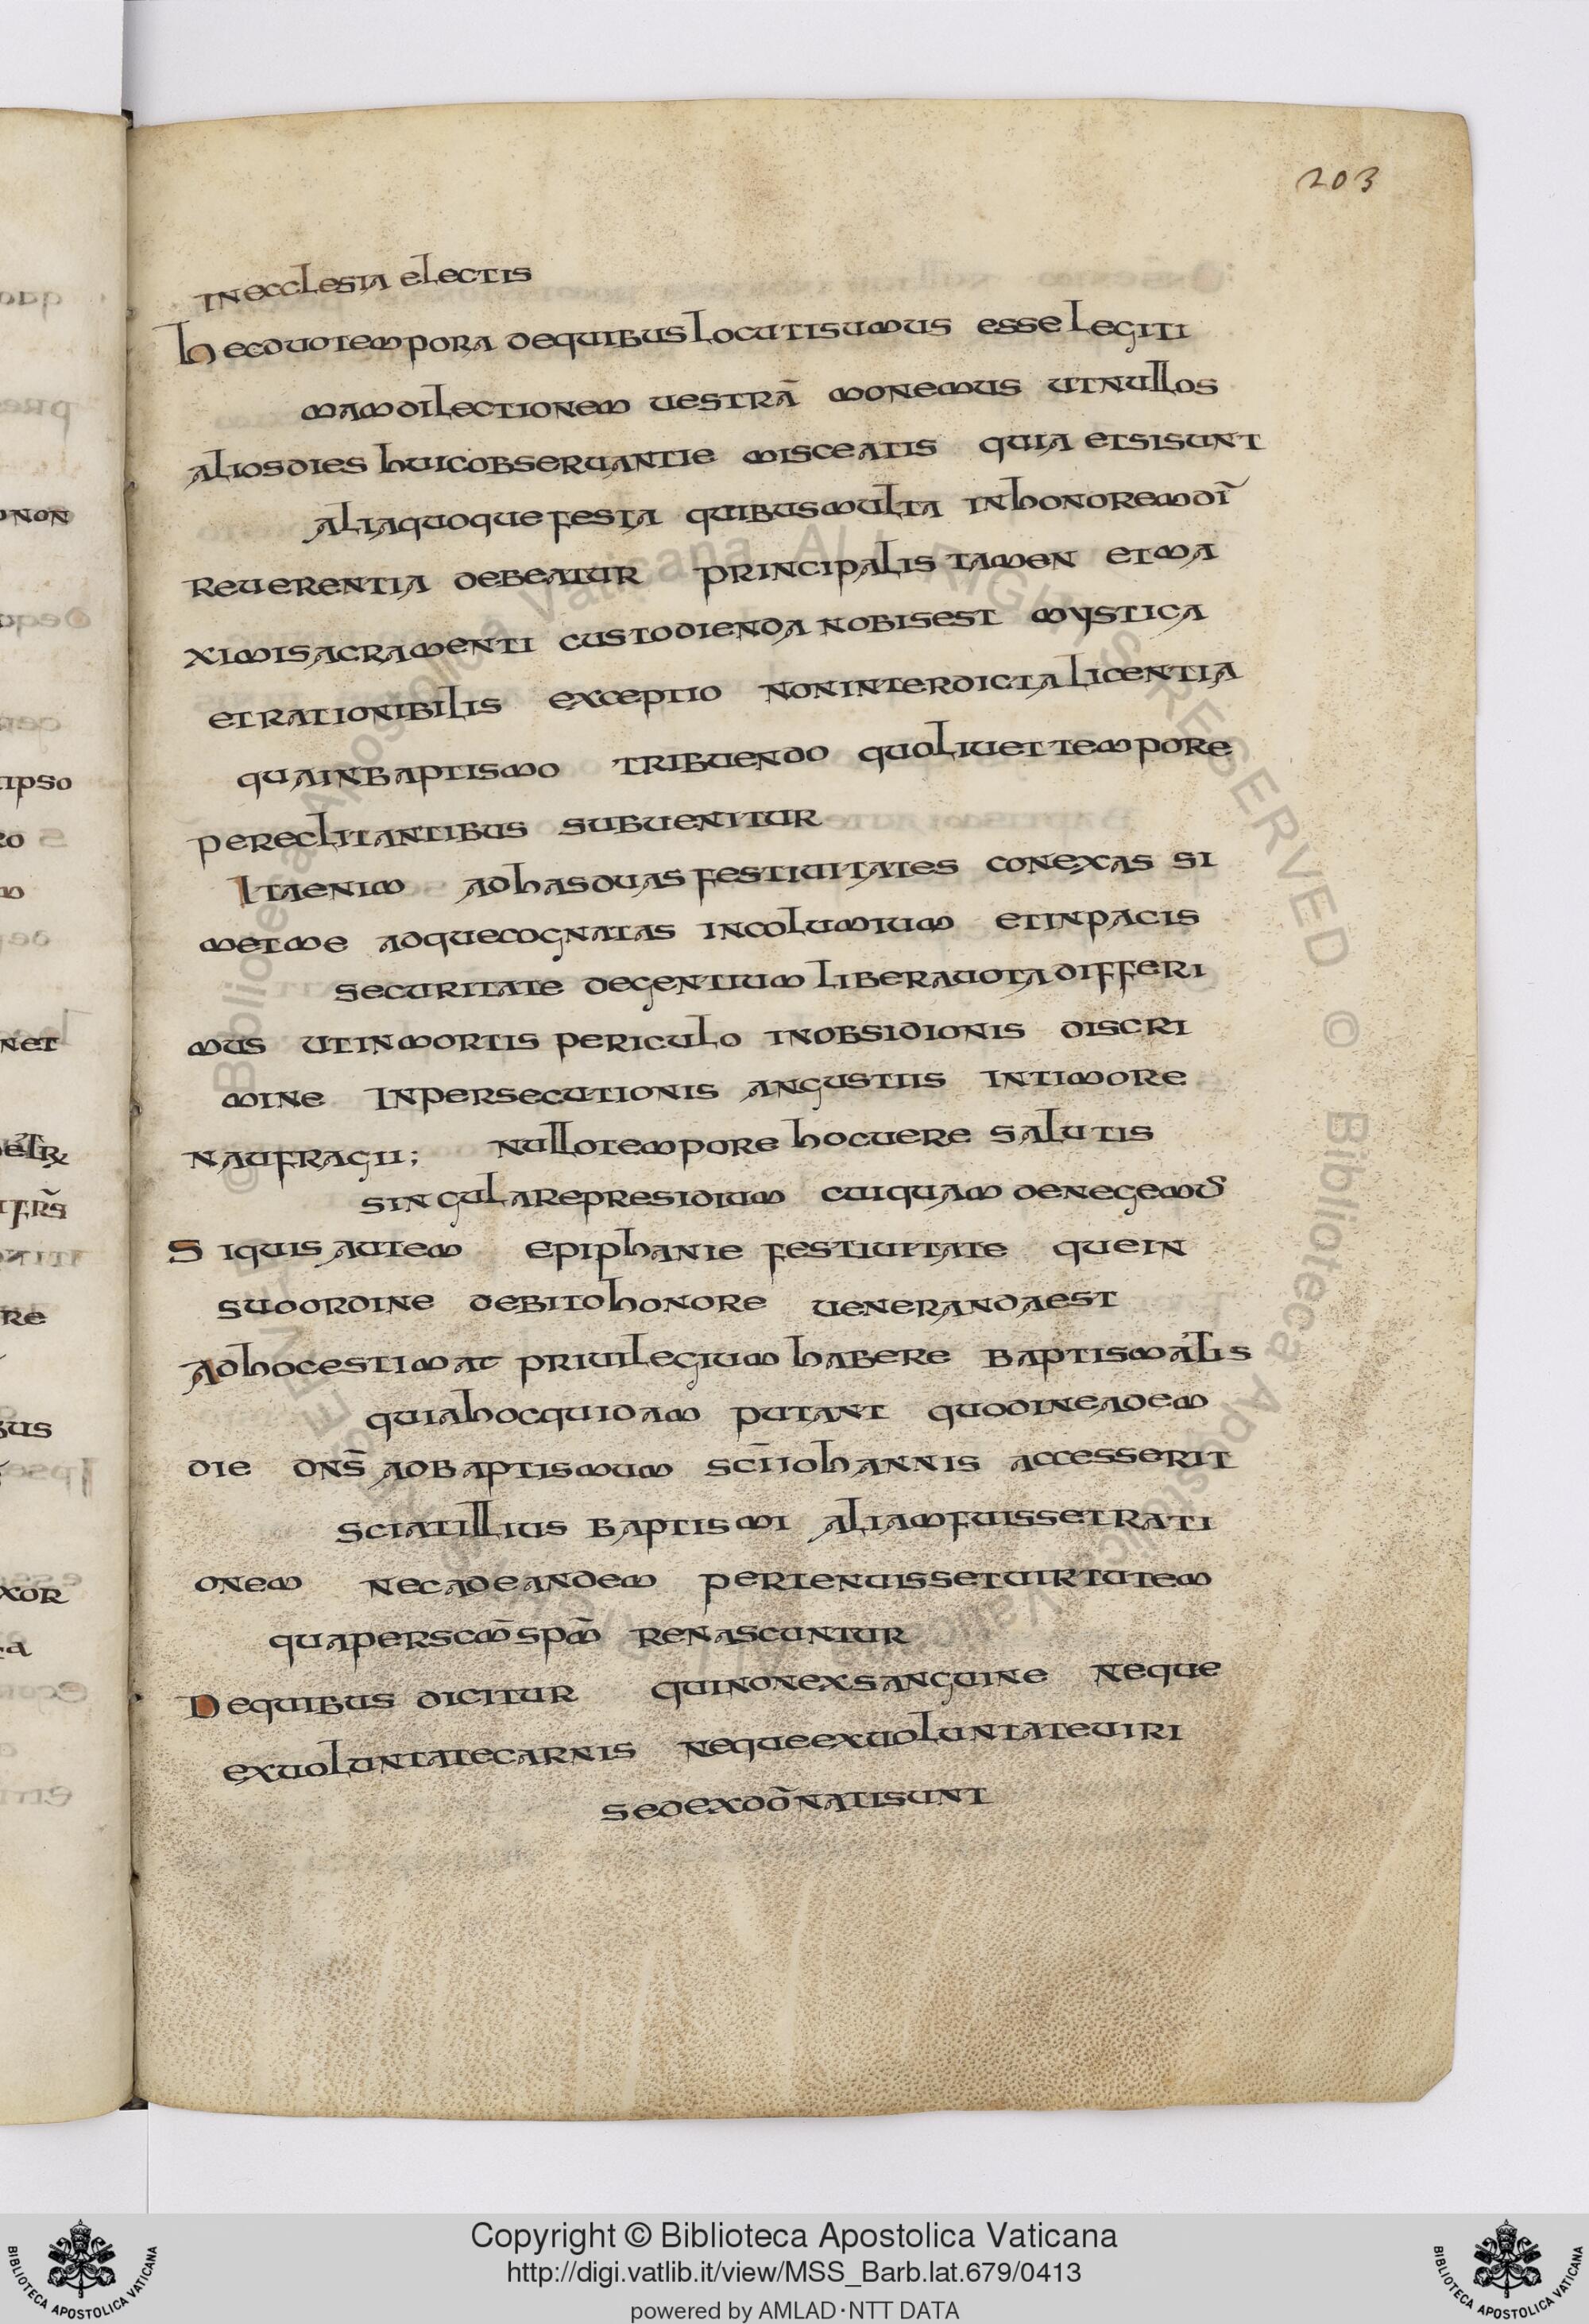 203
in ecclesia electis
hec duo tempora de quibus locuti sumus esse legiti
mam dilectionem uestrā monemus ut nullos
alios dies huic obseruantie misceatis quia etsi sunt
alia quoque festa quibus multa in honorem dī
reuerentia debeatur principalis tamen et ma
ximi sacramenti custodienda nobis est mystica
et rationibilis exceptio non interdicta licentia
qua in baptismo tribuendo quoliuet tempore
pereclitantibus subuenitur
Ita enim ad has duas festiuitates conexas si
met me adque cognatas incolumium et in pacis
securitate degentium libera uota differi
mus ut in mortis periculo in obsidionis discri
mine In persecutionis angustiis In timore
naufragii; nullo tempore hoc uere salutis
singulare presidium cuiquam denegem᷒
Si quis autem epiphanie festiuitate que in
suo ordine debito honore ueneranda est
Ad hoc estimat priuilegium habere baptismalis
quia hoc quidam putant quod in eadem
die dn̄s ad baptismum sc̄i iohannis accesserit
sciat illius baptismi aliam fuisset rati
onem nec ad eandem pertenuisset uirtutem
qua per scm̄ spm̄ renascuntur
De quibus dicitur qui non ex sanguine neque
ex uoluntate carnis neque ex uoluntate uiri
sed ex dō nati sunt
non
ipso
net
re
bus
xor
© Biblioteca Apostolica Vaticana ALL RIGHTS RESERVED © Biblioteca Apostolica Vaticana
Copyright © Biblioteca Apostolica Vaticana
http://digi.vatlib.it/view/MSS_Barb.lat.679/0413
powered by AMLAD·NTT DATA
BIBLIOTECA APOSTOLICA VATICANA
BIBLIOTECA APOSTOLICA VATICANA